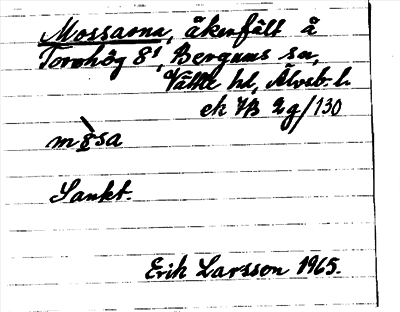 Mossarna, åkerfält å
Tornhög 8¹, Bergums sn,
Vättle hd, Älvsb. l.
ek 7B 2g/130
Sankt.
Erik Larsson 1965.